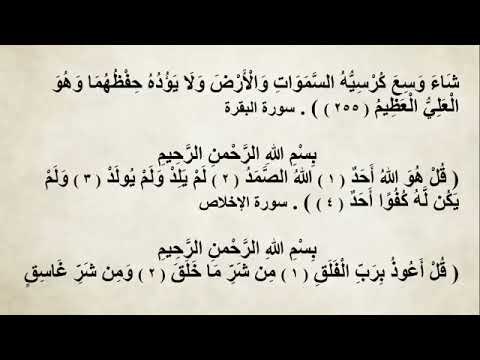 شَاءَ وَسِعَ كُرْسِيُّهُ السَّمَوَاتِ وَالْأَرْضَ وَلَا يَؤُدُهُ حِفْظُهُمَا وَهُوَ
الْعَلِيُّ الْعَظِيمُ ( ٢٥٥ ) ) . سورة البقرة
بِسْمِ اللهِ الرَّحْمنِ الرَّحِيمِ
( قُلْ هُوَ اللهُ أَحَدٌ ( ١ ) اللهُ الصَّمَدُ ( ٢ ) لَمْ يَلِدْ وَلَمْ يُولَدْ ( ٣ ) وَلَمْ
يَكُن لَّهُ كُفُوًا أَحَدٌ ( ٤ ) ) . سورة الإخلاص
بِسْمِ اللهِ الرَّحْمنِ الرَّحِيمِ
( قُلْ أَعُوذُ بِرَبِّ الْفَلَقِ ( ١ ) مِن شَرِّ مَا خَلَقَ ( ٢ ) وَمِن شَرِّ غَاسِقٍ